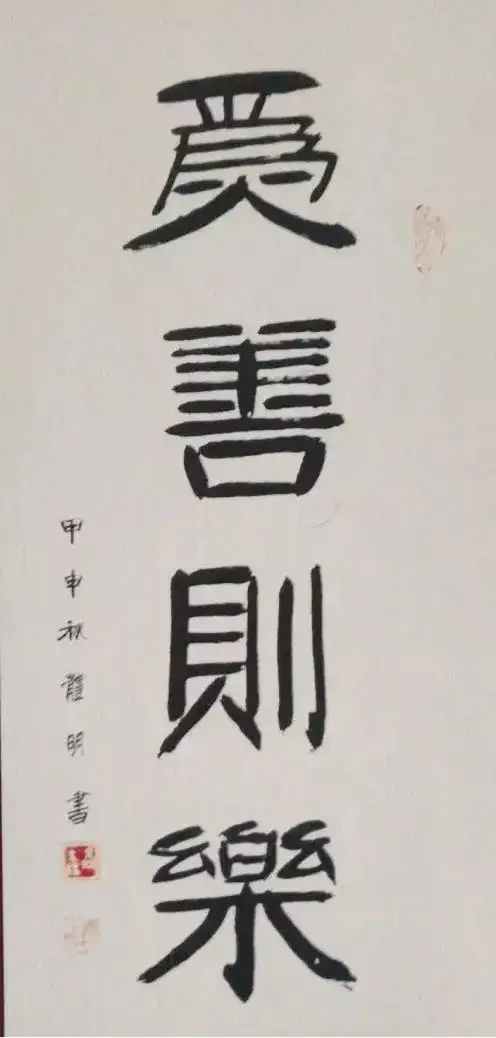 爲善則樂
甲申秋明書